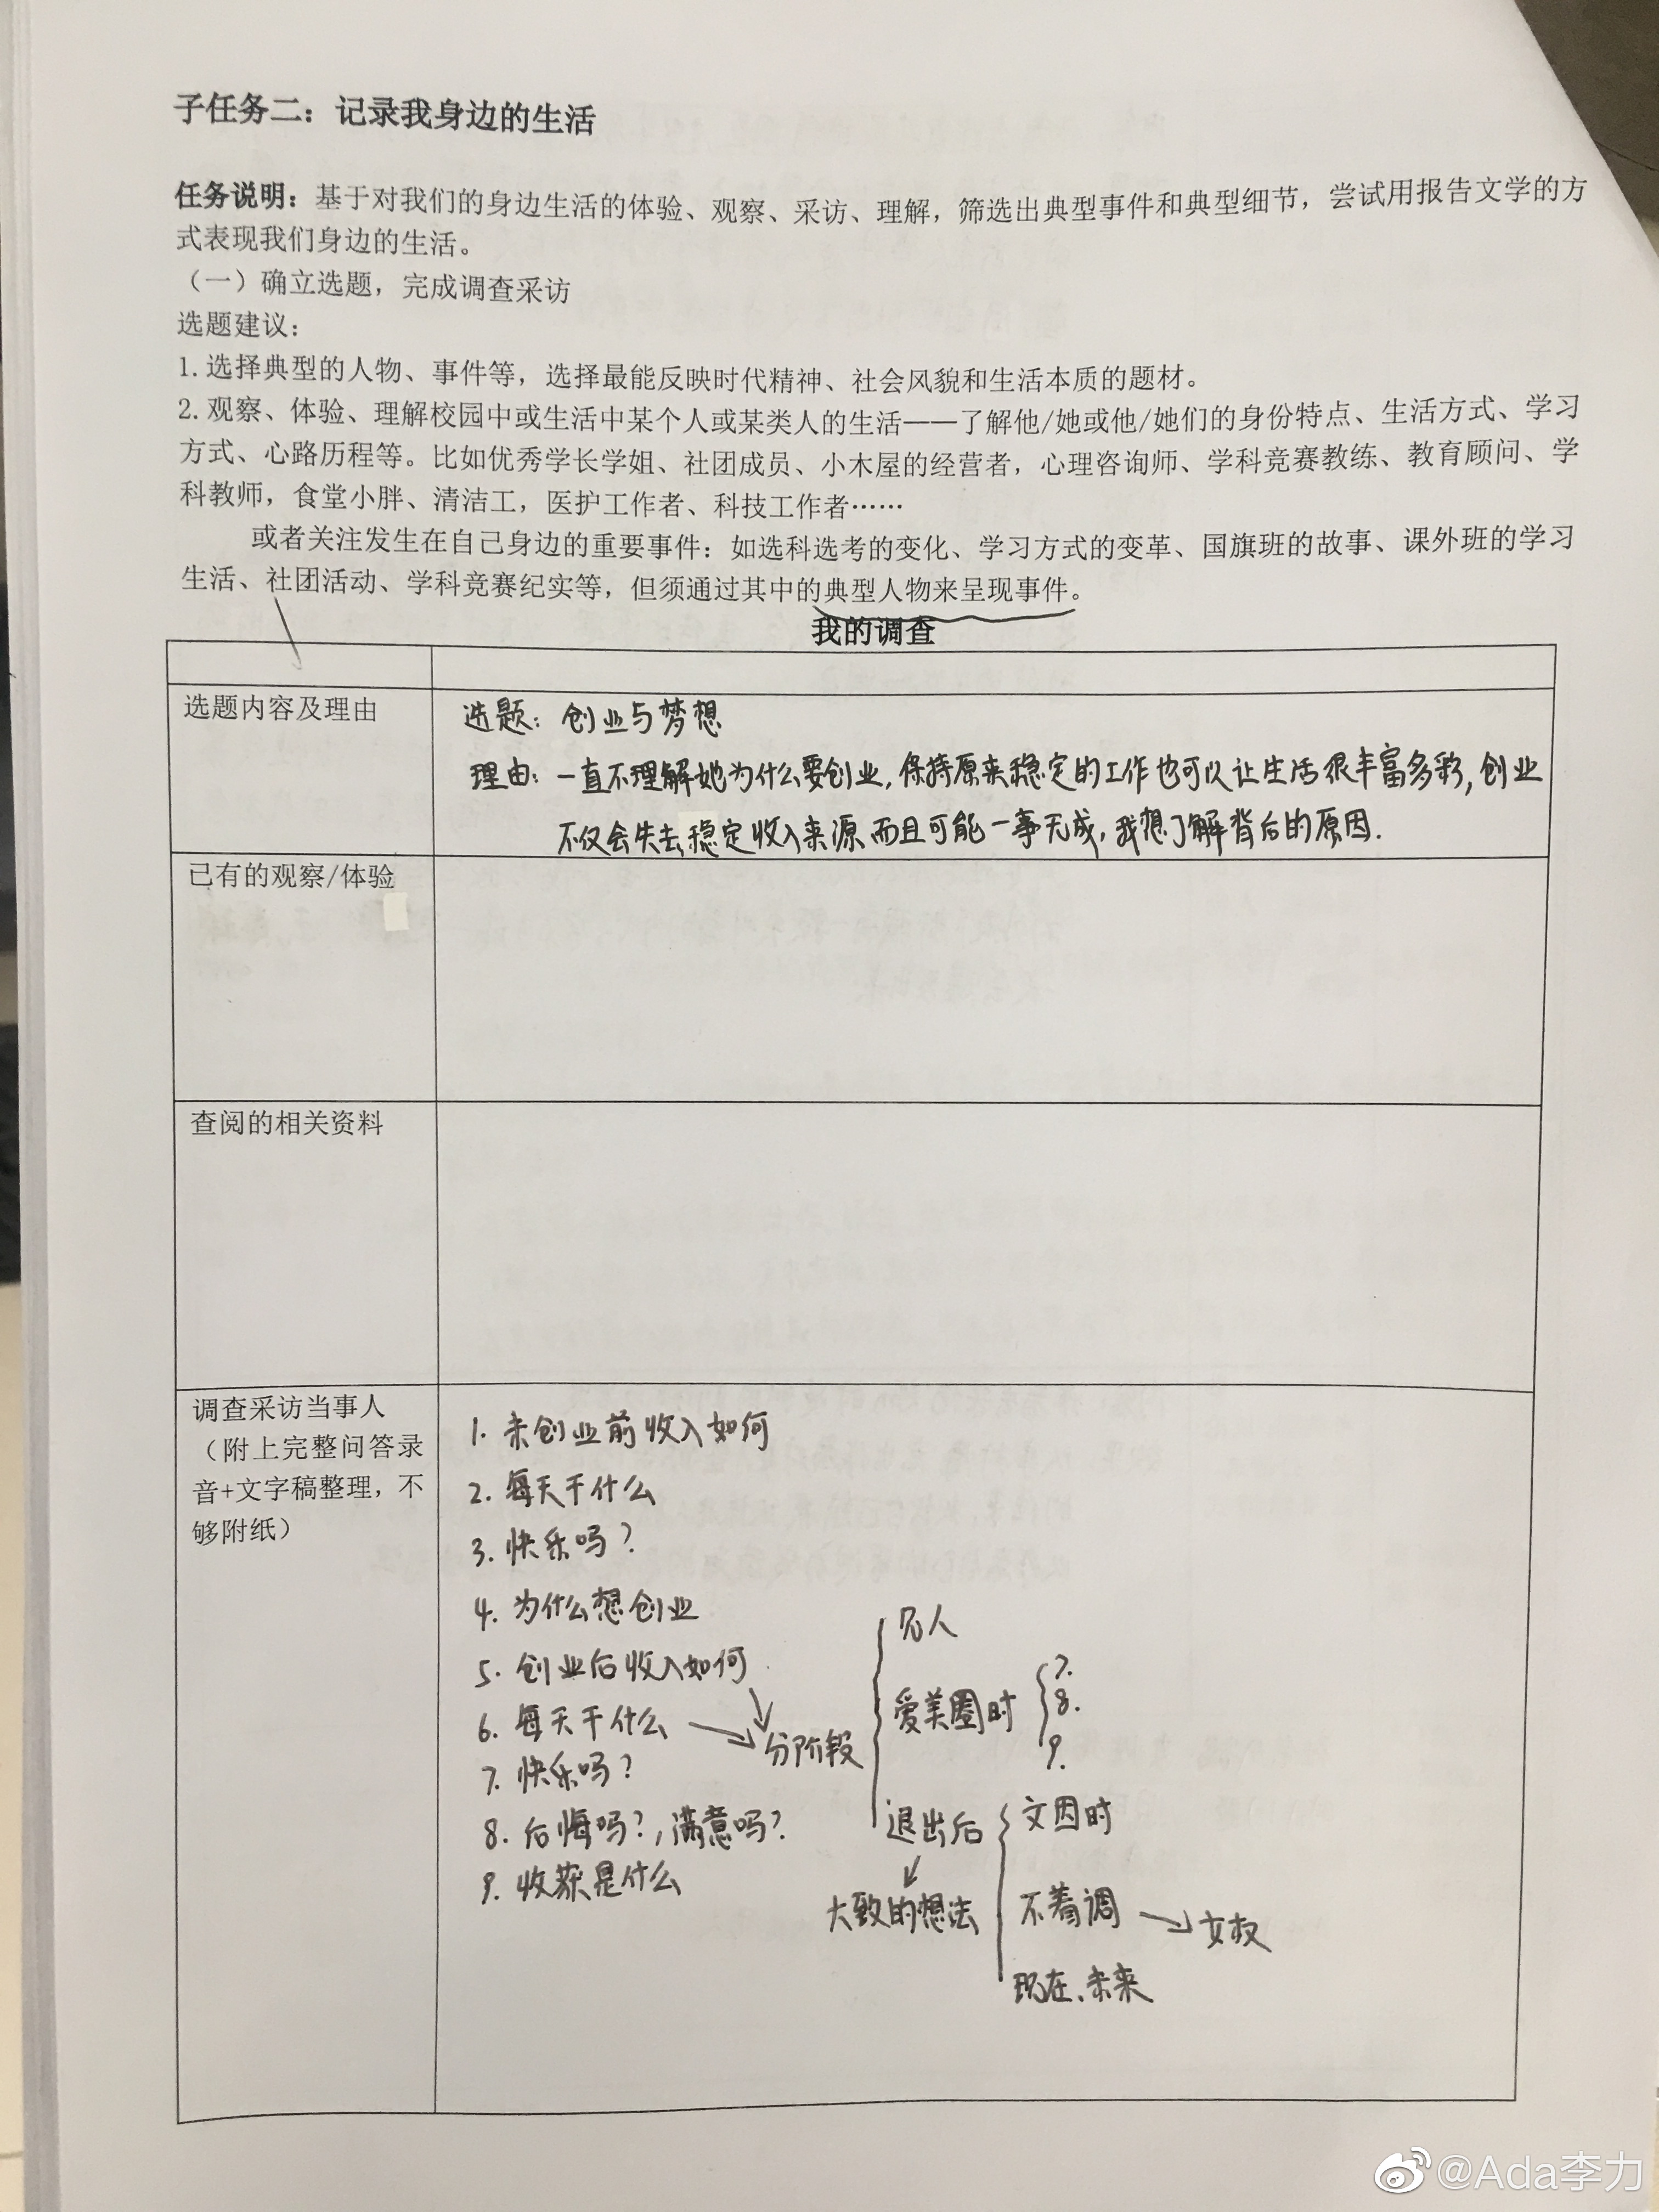 子任务二：记录我身边的生活
任务说明：基于对我们的身边生活的体验、观察、采访、理解，筛选出典型事件和典型细节，尝试用报告文学的方
式表现我们身边的生活。
（一）确立选题，完成调查采访
选题建议：
1.选择典型的人物、事件等，选择最能反映时代精神、社会风貌和生活本质的题材。
2.观察、体验、理解校园中或生活中某个人或某类人的生活——了解他/她或他/她们的身份特点、生活方式、学习
方式、心路历程等。比如优秀学长学姐、社团成员、小木屋的经营者，心理咨询师、学科竞赛教练、教育顾问、学
科教师，食堂小胖、清洁工，医护工作者、科技工作者……
或者关注发生在自己身边的重要事件：如选科选考的变化、学习方式的变革、国旗班的故事、课外班的学习
生活、社团活动、学科竞赛纪实等，但须通过其中的典型人物来呈现事件。
我的调查
选题内容及理由
选题：创业与梦想
理由：一直不理解她为什么要创业，保持原来稳定的工作也可以让生活很丰富多彩，创业
不仅会失去稳定收入来源，而且可能一事无成，我想了解背后的原因.
已有的观察/体验
查阅的相关资料
调查采访当事人
（附上完整问答录
音+文字稿整理，不
够附纸）
1. 未创业前收入如何
2. 每天干什么
3. 快乐吗？
4. 为什么想创业
5. 创业后收入如何
6. 每天干什么
7. 快乐吗？
8. 后悔吗？，满意吗？
9. 收获是什么
分阶段
人
爱美圈时
7.
8.
9.
退出后
大致的想法
文因时
不着调
女权
现在、未来
@Ada李力